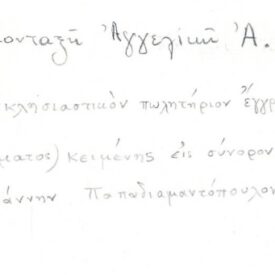 ονταξῆ Ἀγγελικὴ Ἀ.
κλησιαστικὸν πωλητήριον ἔγγρ
ματος) κειμένης εἰς σύνορον
άννην Παπαδιαμαντόπουλον